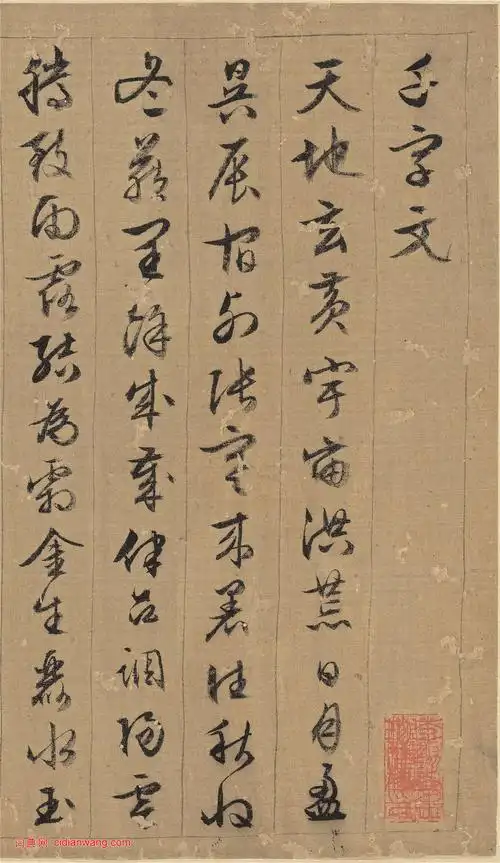 千字文
天地玄黃宇宙洪荒日月盈
昃辰宿列張寒來暑往秋收
冬藏閏餘成歲律呂調陽雲
騰致雨露結為霜金生麗水玉
词典网 cidianwang.com